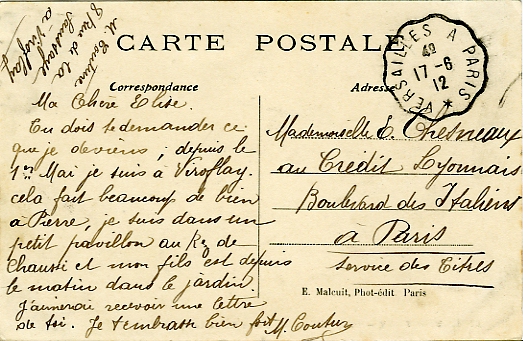 M. Couture
8 Rue de la
Sauvage
à Viroflay
CARTE POSTALE
VERSAILLES A PARIS
4e
17-6
12
Correspondance
Adresse
Ma Chère Elise.
Tu dois te demander ce
que je deviens, depuis le
1er Mai je suis à Viroflay.
cela fait beaucoup de bien
à Pierre, je suis dans un
petit pavillon au Rez de
Chaussé et mon fils est depuis
le matin dans le jardin.
J'aimerai recevoir une lettre
de toi. Je t'embrasse bien fort
Mademoiselle E. Chesneaux
au Crédit Lyonnais
Boulevard des Italiens
à Paris
Service des Titres
E. Malcuit, Phot-édit Paris